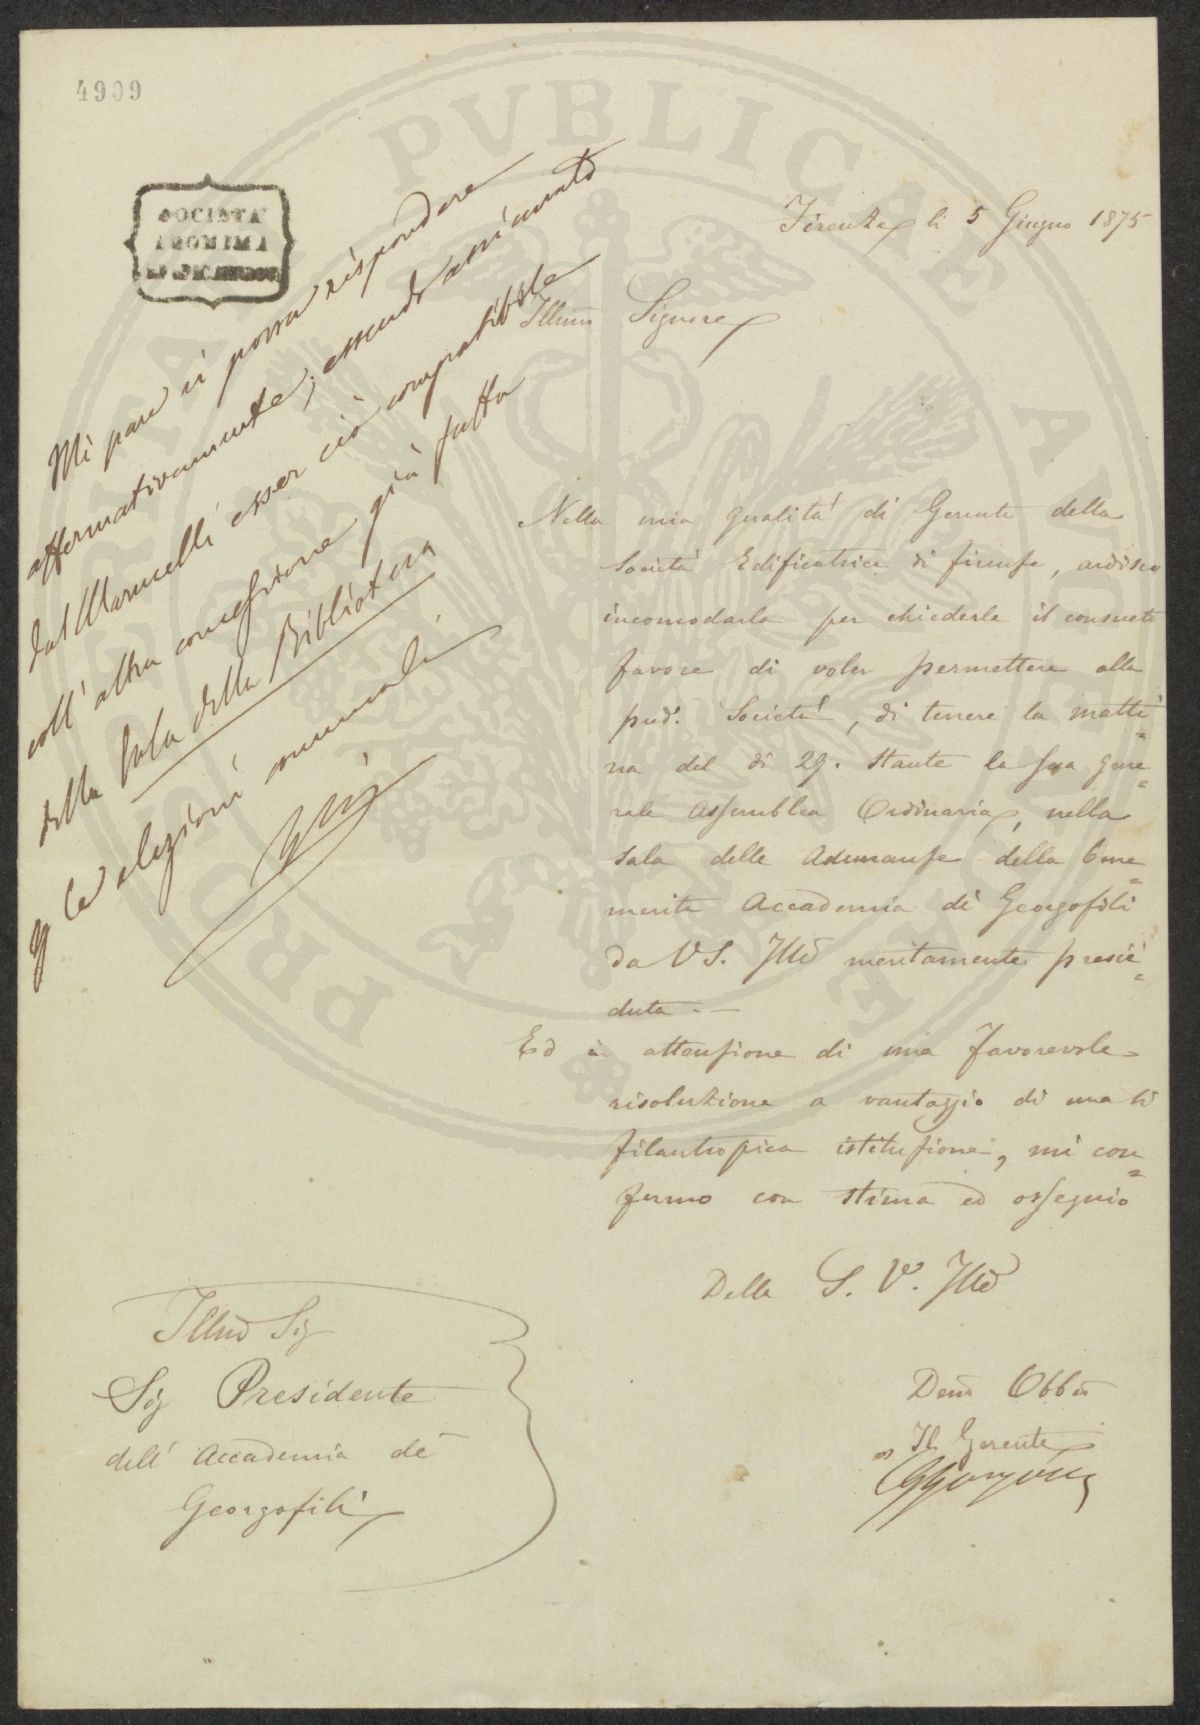 4909
SOCIETA'
ANONIMA
EDIFICATRICE
Firenze li 5 Giugno 1875
Illmo Signore
Nella mia qualità di Gerente della
Società Edificatrice di Firenze, ardisco
incomodarla per chiederle il consueto
favore di voler permettere alla
pred. Società, di tenere la matti=
na del dì 29. stante la sua Gene=
rale Assemblea Ordinaria, nella
sala delle Adunanze della bene=
merita Accademia dè Georgofili
da V S. Illma meritamente presie=
duta. —
Ed in attenzione di una favorevole
risoluzione a vantaggio di una sì
filantropica istituzione, mi con=
fermo con stima ed ossequio
Della S. V. Illma
Devmo Obbmo
Il Gerente
Illmo Sig
Sig Presidente
dell' Accademia dè
Georgofili
Mi pare si possa rispondere
affermativamente, essendo assicurato
dal Marucelli esser ciò compatibile
coll' altra concessione già fatta
della Sala della Biblioteca
p le elezioni comunali
PROSPERITATI PVBLICAE AVGENDAE